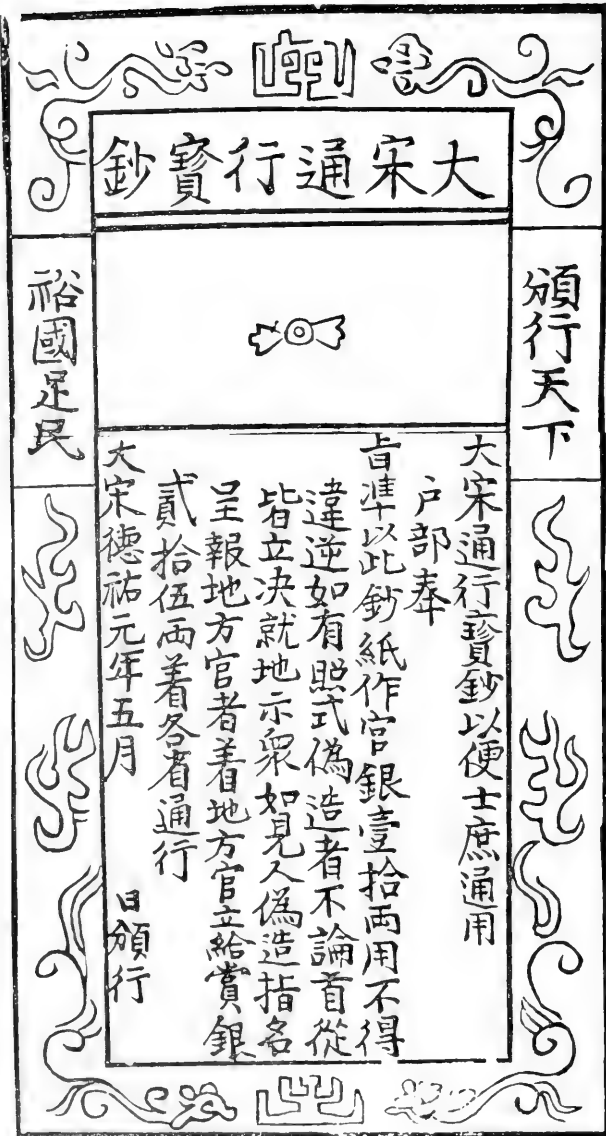 大宋通行寳鈔
頒行天下
裕國足民
大宋通行寳鈔以便士庶通用
户部奉
旨準以此鈔紙作官銀壹拾両用不得
違逆如有照式偽造者不論首從
皆立决就地示衆如見人偽造指名
呈報地方官者着地方官立給賞銀
貳拾伍両着各省通行
大宋德祐元年五月　日頒行